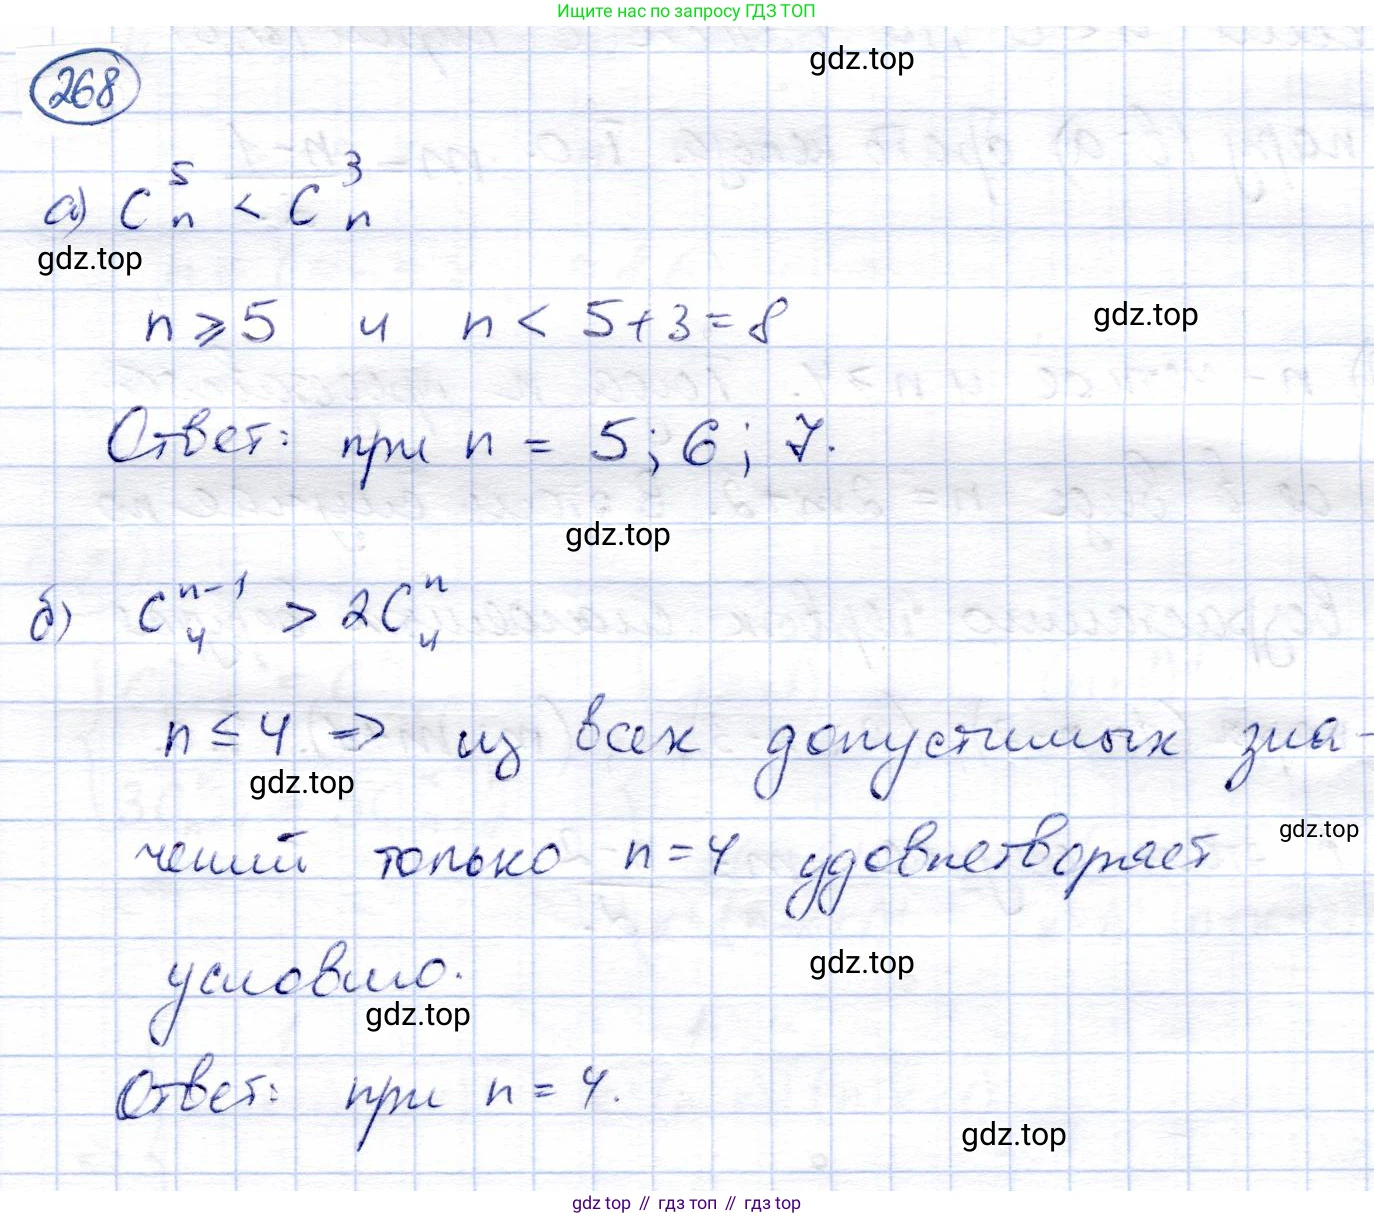 Ищите нас по запросу ГДЗ ТОП
gdz.top
268
а) C⁵ₙ < C³ₙ
gdz.top
n ⩾ 5 и n < 5+3=8
gdz.top
Ответ: при n = 5; 6; 7.
gdz.top
б) C₄ⁿ⁻¹ > 2C₄ⁿ
n ≤ 4 => из всех допустимых зна-
gdz.top
gdz.top
чений только n=4 удовлетворяет
gdz.top
условию.
gdz.top
Ответ: при n = 4.
gdz.top
gdz top // гдз топ // гдз top